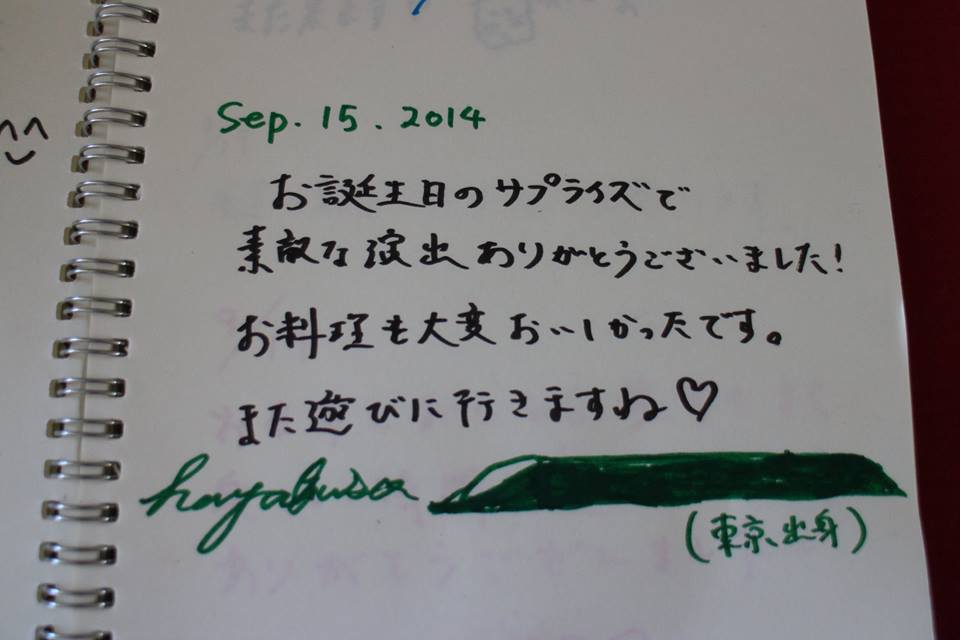 Sep. 15. 2014
お誕生日のサプライズで
素敵な演出ありがとうございました!
お料理も大変おいしかったです。
また遊びに行きますね♡
hayabusa
(東京出身)